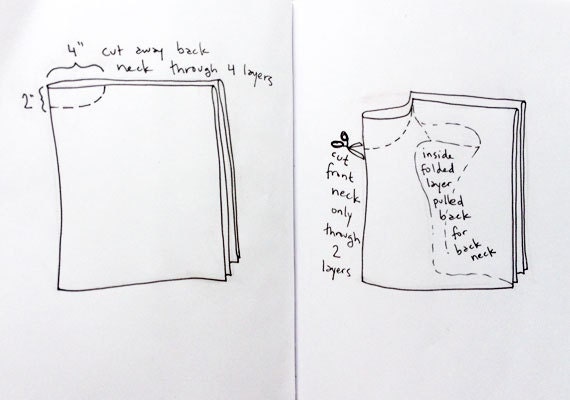 4" cut away back
neck through 4 layers
2"
cut
front
neck
only
through
2
layers
inside
folded
layer
pulled
back
for
back
neck